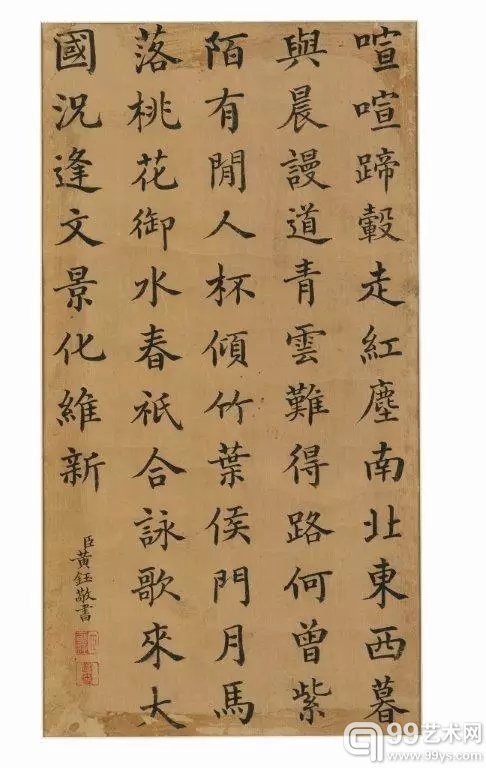 喧喧蹄轂走紅塵南北東西暮
與晨謾道青雲難得路何曾紫
陌有閒人杯傾竹葉侯門月馬
落桃花御水春祇合詠歌來大
國況逢文景化維新
臣黃鈺敬書
99艺术网
www.99ys.com